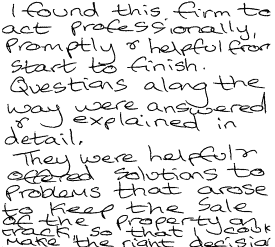 I found this firm to
act professionally,
promptly & helpful from
start to finish.
Questions along the
way were answered
& explained in
detail.
They were helpful &
offered solutions to
problems that arose
to keep the sale
of the property on
track, so that I could
make the right decision